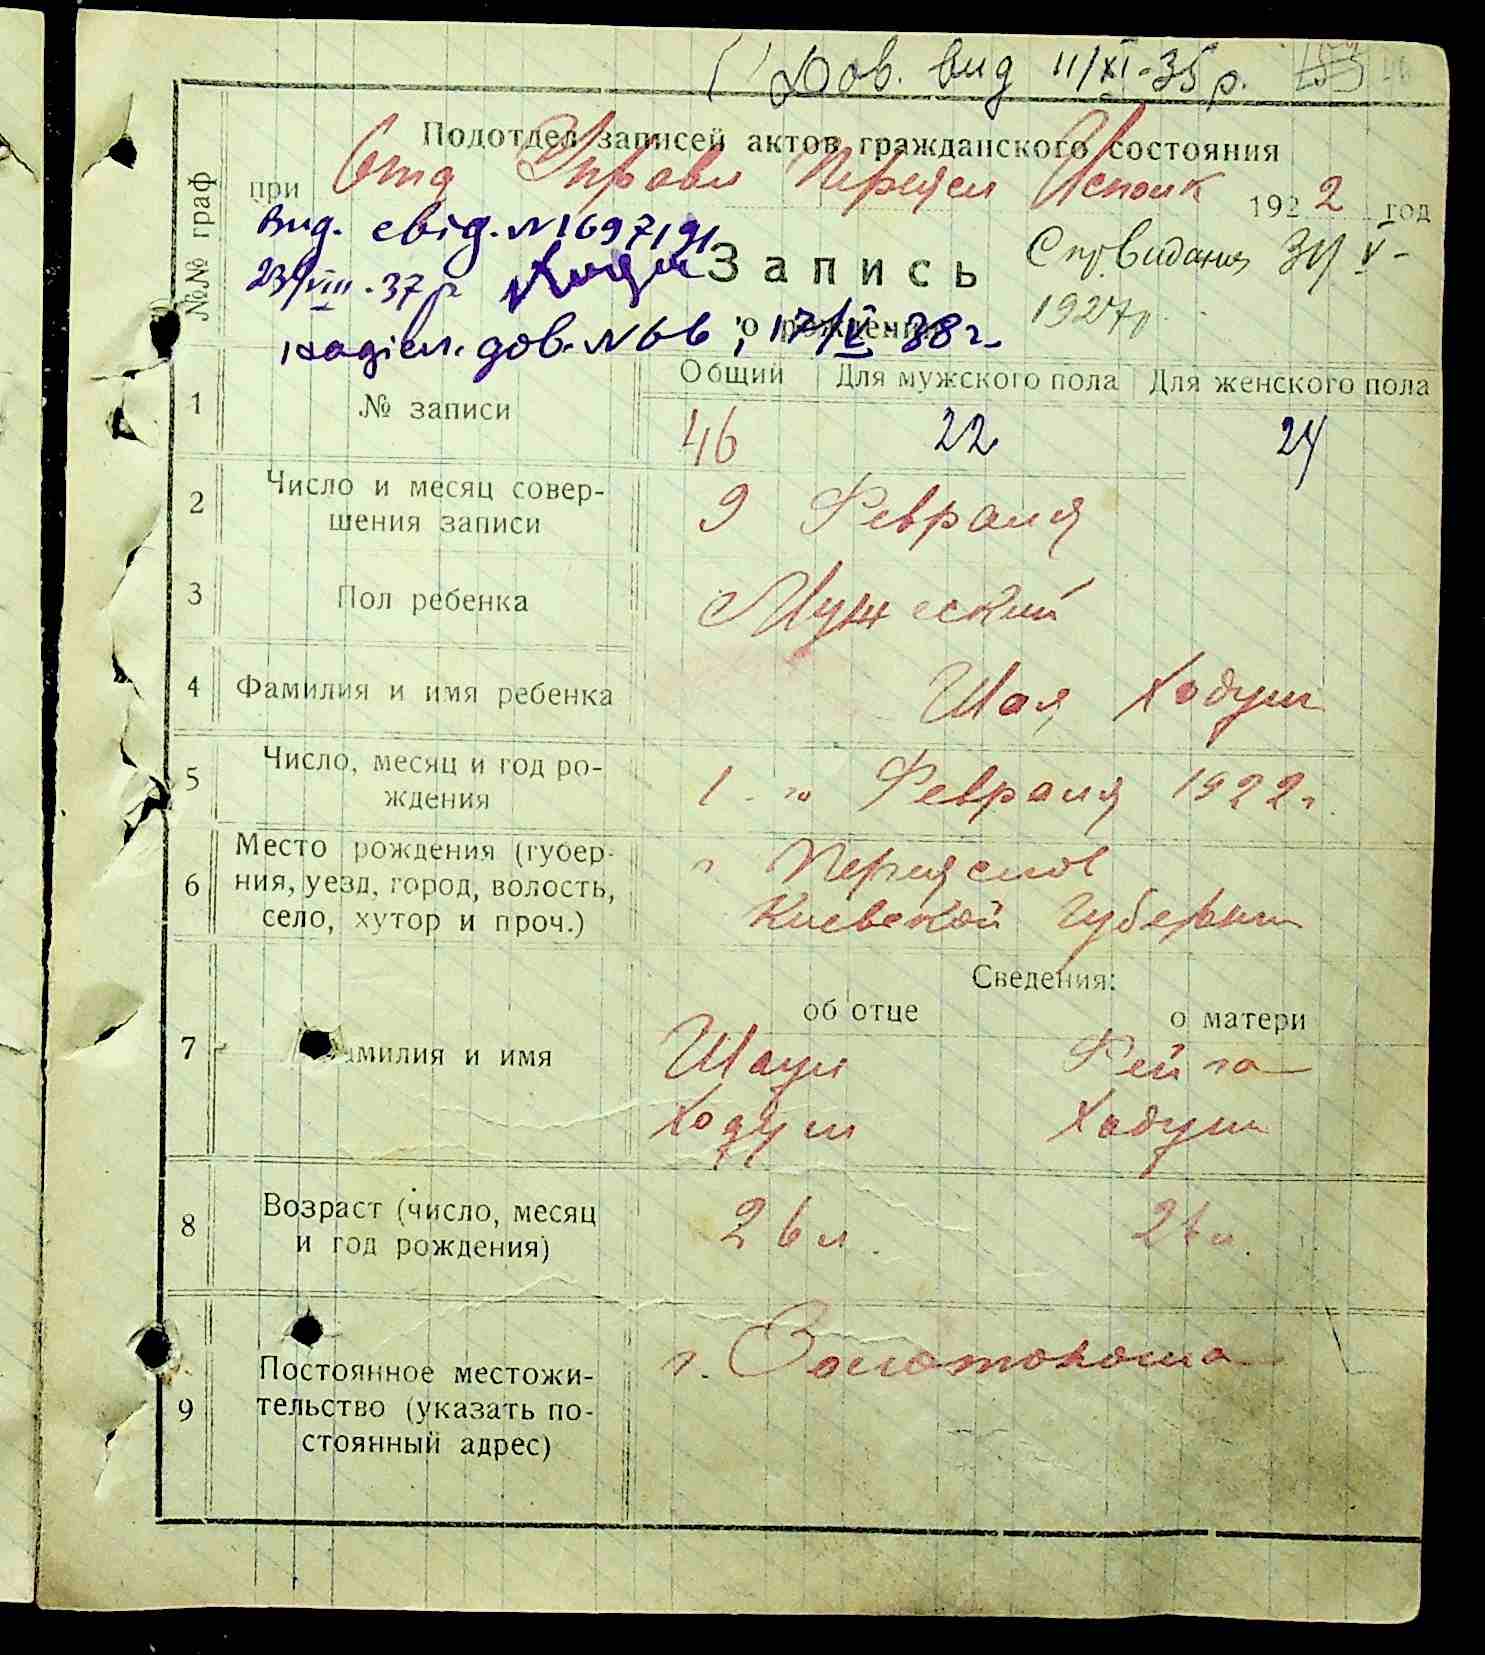 Дов. вид 11/XI-35 р.
Подотдел записей актов гражданского состояния
при Отд Управл Переясл Исполк 1922 год
№№ граф
Вид. свід. N
23/VIII-37 р
Запись
31/V-
1927р.
о рождении
дов. N66, 17/VI-38 г.
Общий Для мужского пола Для женского пола
1 № записи 46 22 24
2 Число и месяц совер-
шения записи 9 Февраля
3 Пол ребенка Мужеский
4 Фамилия и имя ребенка Шая Ходуш
5 Число, месяц и год ро-
ждения 1-го Февраля 1922 г.
6 Место рождения (губер-
ния, уезд, город, волость,
село, хутор и проч.)
г. Переяслов
Киевской Губернии
Сведения:
об отце о матери
7 амилия и имя
Шаул Фейга
Ходуш Ходуш
8 Возраст (число, месяц
и год рождения) 26 л. 26 л.
9 Постоянное местожи-
тельство (указать по-
стоянный адрес)
г. Золотоноша